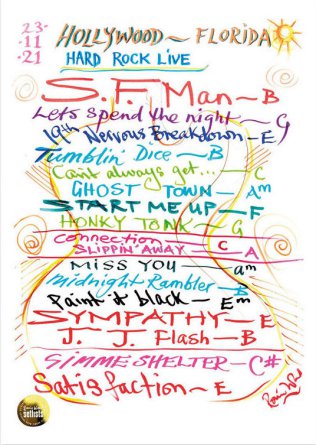 23-
11
.21
HOLLYWOOD ~ FLORIDA
HARD ROCK LIVE
S.F. Man ~ B
Lets Spend the night ~ G
19th Nervous Breakdown ~ E
Tumblin' Dice ~ B
Can't always get... ~ C
GHOST TOWN ~ Am
START ME UP ~ F
HONKY TONK ~ G
Connection C
SLIPPIN' AWAY A
MISS YOU ~ am
Midnight Rambler ~ B
Paint it black ~ Em
SYMPATHY ~ E
J. J. Flash ~ B
GIMME SHELTER ~ C#
Satisfaction ~ E
setlists